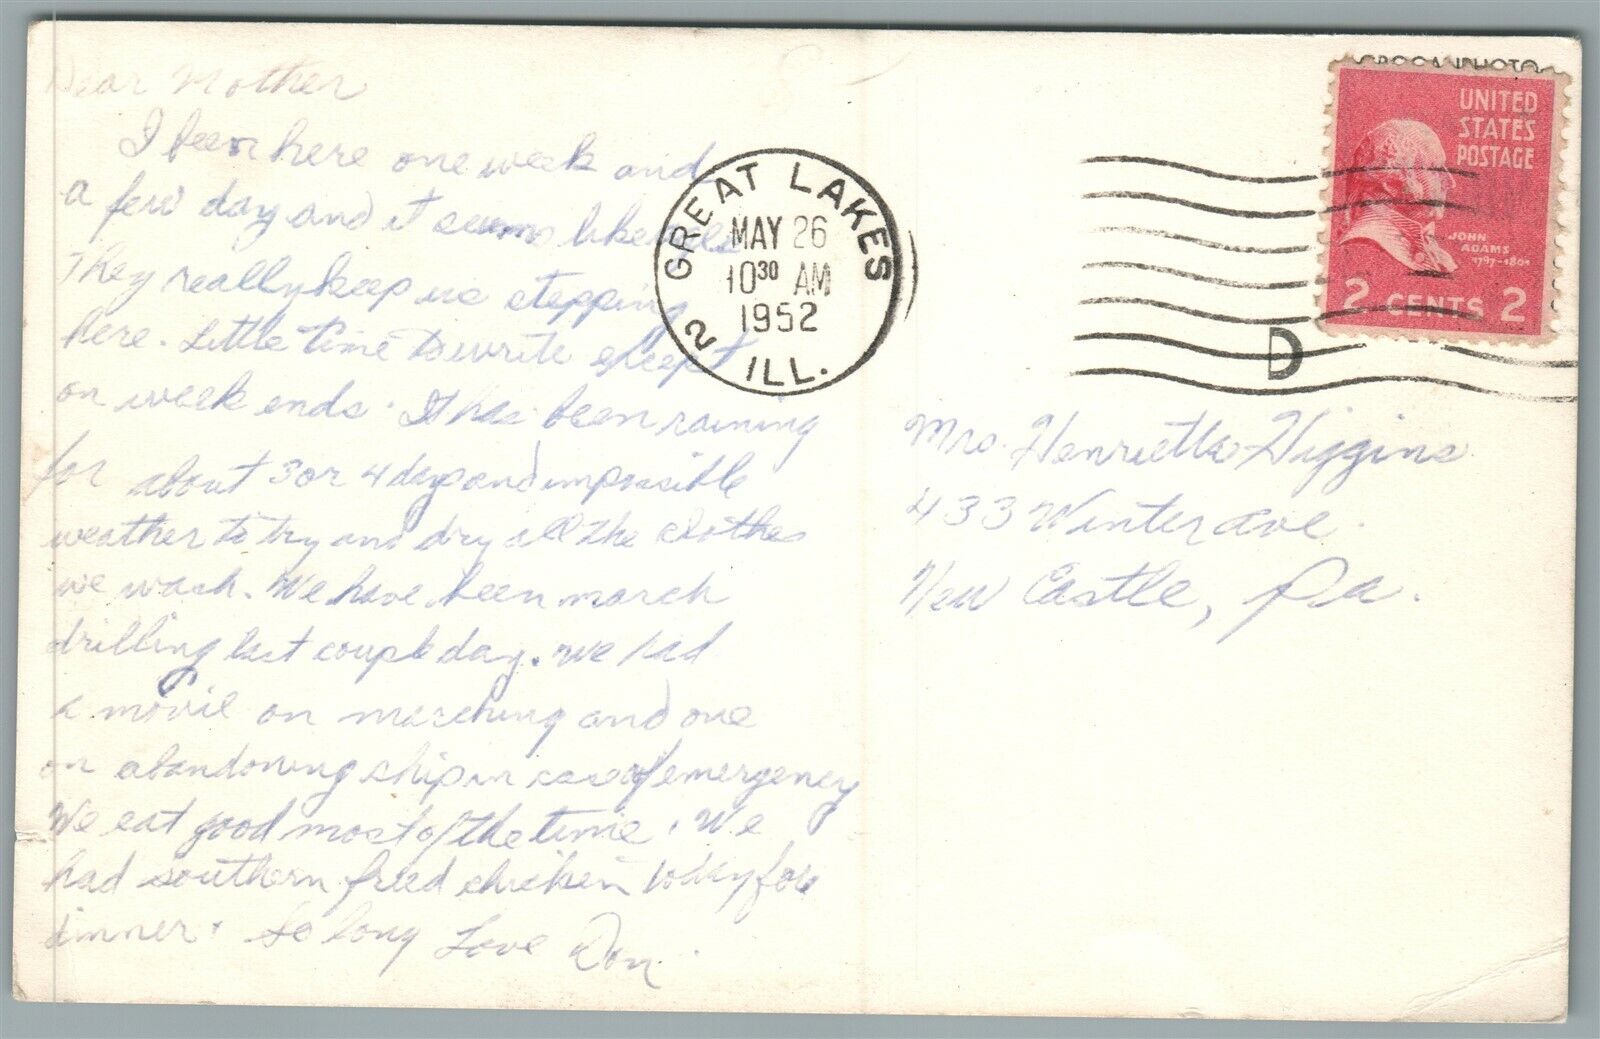 Dear Mother
I been here one week and
a few day and it seems like
They really keep us stepping
here. Little time to write except
on week ends. It has been raining
for about 3 or 4 days and impossible
weather to try and dry all the clothes
we wash. We have been march
drilling last couple day. We had
a movie on marching and one
on abandoning ship in case of emergency
We eat good most of the time. We
had southern fried chicken today for
dinner. So long Love Don.
GREAT LAKES
MAY 26
10 30 AM
1952
2 ILL.
D
UNITED
STATES
POSTAGE
JOHN
ADAMS
1797-1801
2 CENTS 2
Mrs. Henrietta Higgins
433 Winter ave.
New Castle, Pa.